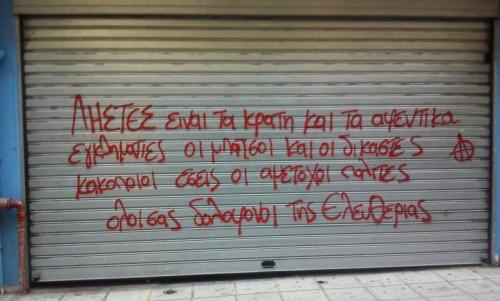 ΛΗΣΤΕΣ ειναι τα κρατη και τα αφεντικα
εγκληματιες οι μπατσοι και οι δικαστες
κακοποιοι εσεις οι αμετοχοι πολιτες
ολοι σας δολοφονοι της Ελευθεριας